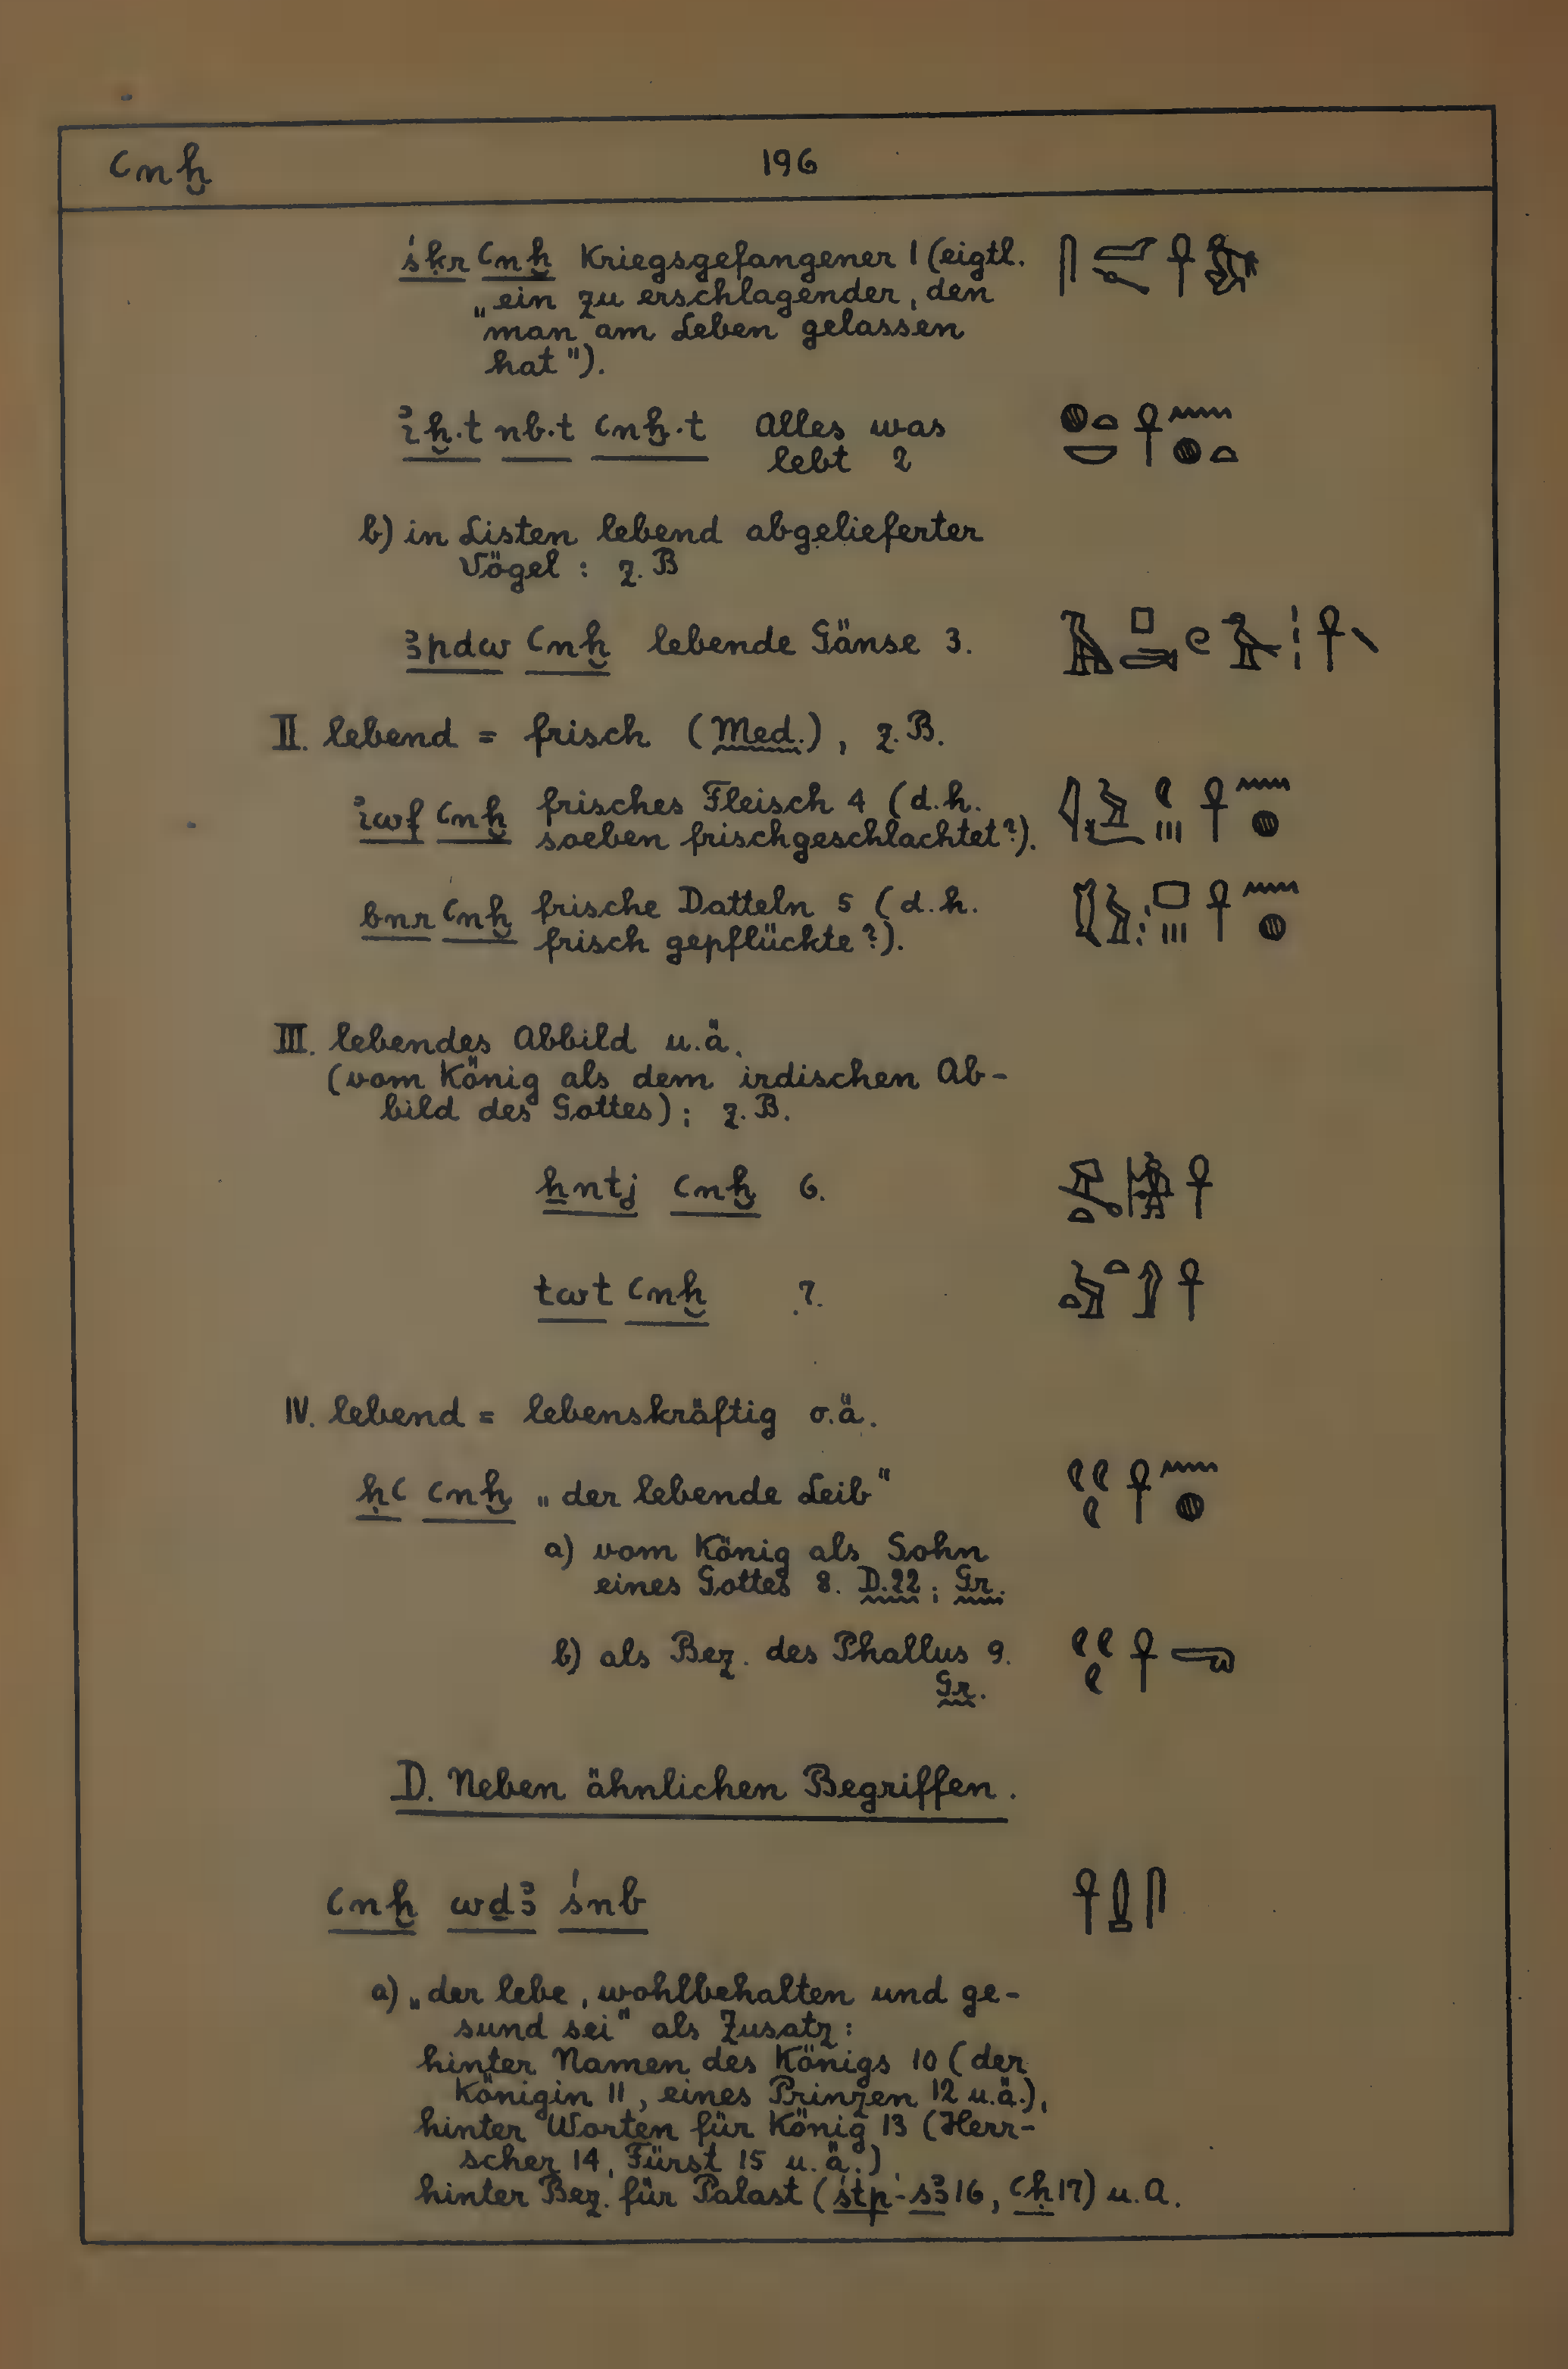 ꜥnḫ 196
śḳr ꜥnḫ Kriegsgefangener 1 (eigtl.
„ein zu erschlagender, den
man am Leben gelassen
hat").
iḫ.t nb.t ꜥnḫ.t Alles was
lebt 2
b) in Listen lebend abgelieferter
Vögel: z. B
ꜣpdw ꜥnḫ lebende Gänse 3.
II. lebend = frisch (Med.), z. B.
iwf ꜥnḫ frisches Fleisch 4 (d.h.
soeben frischgeschlachtet?).
bnr ꜥnḫ frische Datteln 5 (d.h.
frisch gepflückte?).
III. lebendes Abbild u.ä.
(vom König als dem irdischen Ab-
bild des Gottes); z. B.
ẖntj ꜥnḫ 6.
twt ꜥnḫ 7.
IV. lebend = lebenskräftig o.ä.
ḥꜥ ꜥnḫ „der lebende Leib"
a) vom König als Sohn
eines Gottes 8. D.22; Gr.
b) als Bez. des Phallus 9.
Gr.
D. Neben ähnlichen Begriffen.
ꜥnḫ wḏꜣ śnb
a) „der lebe, wohlbehalten und ge-
sund sei" als Zusatz:
hinter Namen des Königs 10 (der
Königin 11, eines Prinzen 12 u.ä.),
hinter Worten für König 13 (Herr-
scher 14, Fürst 15 u.ä.),
hinter Bez. für Palast (śtp-sꜣ 16, ꜥḥ 17) u. A.